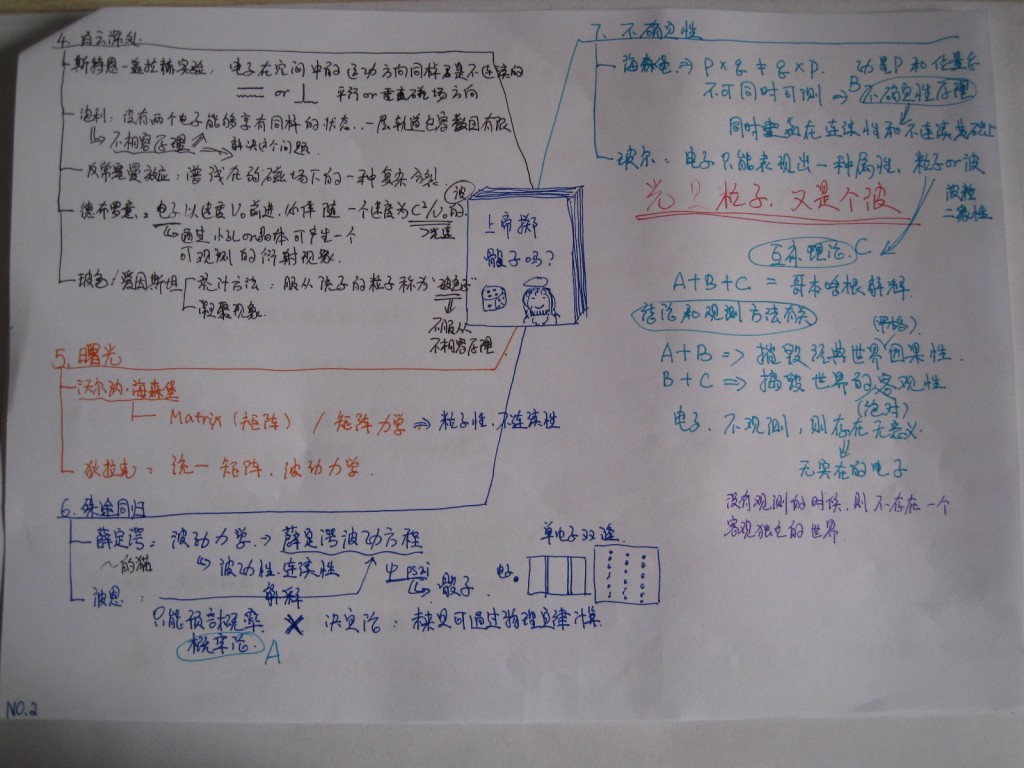 4. 白云深处
斯特恩-盖拉赫实验, 电子在空间中的运动方向同样是不连续的
or 平行or垂直磁场方向
泡利: 没有两个电子能够享有同样的状态. 一层轨道包容数目有限
不相容原理 解决这个问题.
反常塞曼效应: 谱线在弱磁场下的一种复杂分裂.
德布罗意: 电子以速度V₀前进, 伴随一个速度为C²/V₀的波
>光速
通过小孔or晶体可产生一个
可观测的衍射现象.
玻色/爱因斯坦 统计方法: 服从 的粒子称为“玻色子”
凝聚现象. 不服从
不相容原理
上帝掷
骰子吗?
5. 曙光
沃尔纳·海森堡
Matrix (矩阵) / 矩阵力学 ⇒ 粒子性. 不连续性
狄拉克: 统一矩阵. 波动力学.
6. 殊途同归
薛定谔: 波动力学. → 薛定谔波动方程
～的猫 波动性. 连续性
波恩: 解释 ψ psai 骰子
只能预言概率 ✗ 决定论: 可通过物理定律计算
概率论. A
单电子双缝.
电子
7. 不确定性
海森堡 ⇒ p×q ≠ q×p. 动量P和位置q
不可同时可测 ⇒ B 不确定性原理
同时 在连续性和不连续 基础上
波尔: 电子只能表现出一种属性. 粒子or波
波粒
二象性
光是粒子, 又是个波
互补理论. C
A+B+C = 哥本哈根解释.
结论和观测方法有关
(严格)
A+B => 摧毁经典世界因果性.
B+C => 摧毁世界的客观性
(绝对)
电子. 不观测, 则存在无意义.
无实在的电子
没有观测的时候. 则不存在一个
客观独立的世界.
NO.2